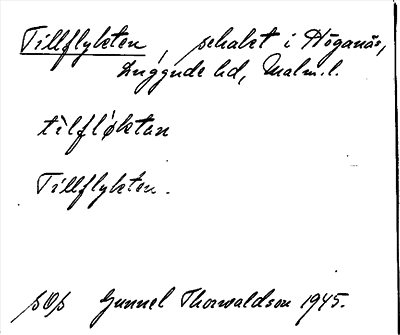 Tillflykten, schakt i Höganäs,
Luggude hd, Malm. l.
tìlfløktan
Tillflykten.
pOp Gunnel Thorwaldson 1945.